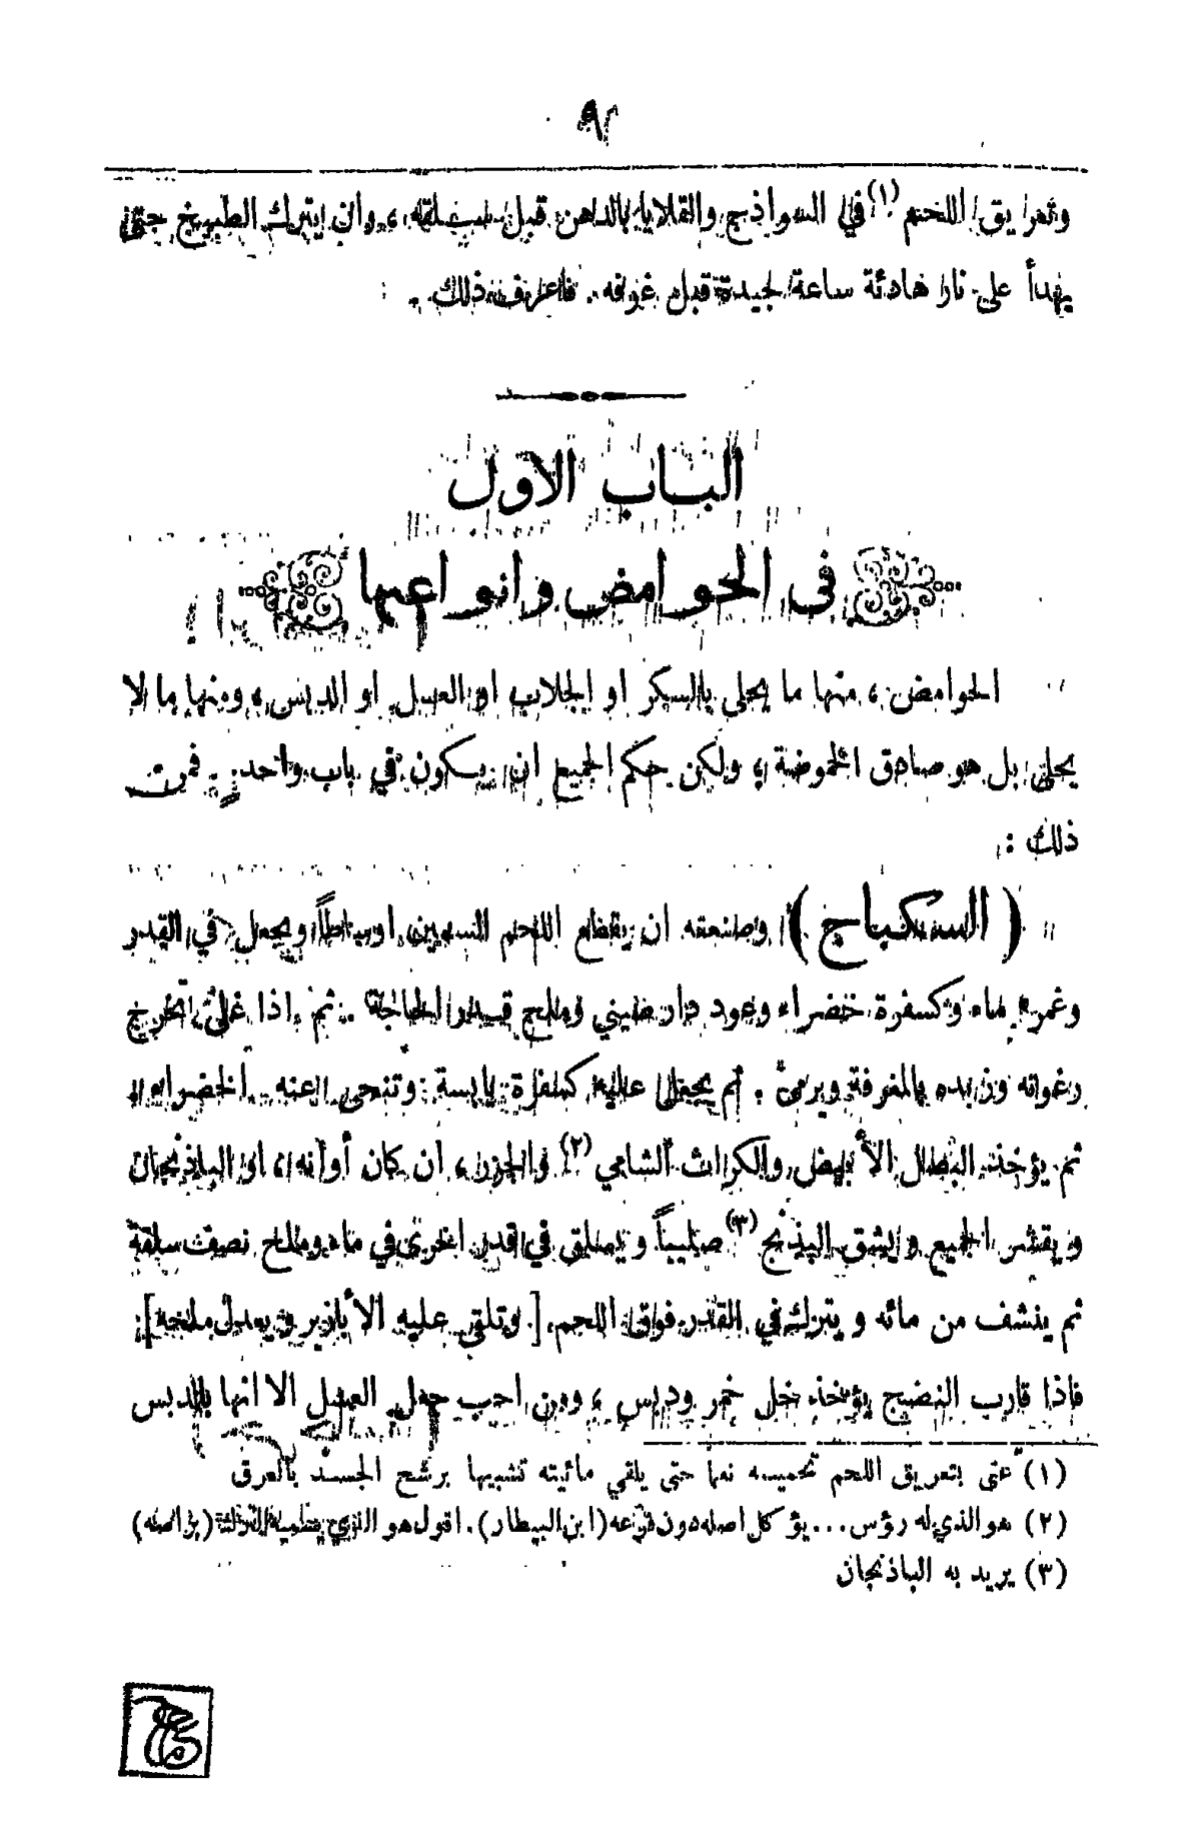 ٩
وتعريق اللحم (١) في السواذج والقلايا بالدهن قبل سلقه ، وان يترك الطبيخ حتى
يهدأ على نار هادئة ساعة جيدة قبل غرفه . فاعرف ذلك .
الباب الاول
في الحوامض وانواعها
الحوامض ، منها ما يحلى بالسكر او الجلاب او العسل او الدبس ، ومنها ما لا
يحلى بل هو صادق الحموضة ، ولكن حكم الجميع ان يكون في باب واحد . فمن
ذلك :
( السكباج ) وصنعته ان يقطع اللحم السمين اوساطاً ويجعل في القدر
وغمره ماء وكسفرة خضراء وعود دار صيني وملح قدر الحاجة . ثم اذا غلى تخرج
رغوته وزبده بالمغرفة ويرمى . ثم يجعل عليه كسفرة يابسة وتنحى عنه الخضراء
ثم يؤخذ البصل الأبيض والكراث الشامي (٢) والجزر ، ان كان أوانه ، او الباذنجان
ويقشر الجميع ويشق البيذنج (٣) صليباً ويصلق في قدر اخرى في ماء وملح نصف سلقة
ثم ينشف من مائه ويترك في القدر فوق اللحم [ وتلقى عليه الأبازير ويعدل ملحه ]
فاذا قارب النضيج يؤخذ خل خمر ودبس ، ومن احب جعل العسل الا انها بالدبس
(١) عنى بتعريق اللحم تحميسه نعما حتى يلقي مائيته تشبيها برشح الجسد بالعرق
(٢) هو الذي له رؤس ... يؤكل اصله دون فرعه (ابن البيطار) . اقول هو الذي (براصه)
(٣) يريد به الباذنجان